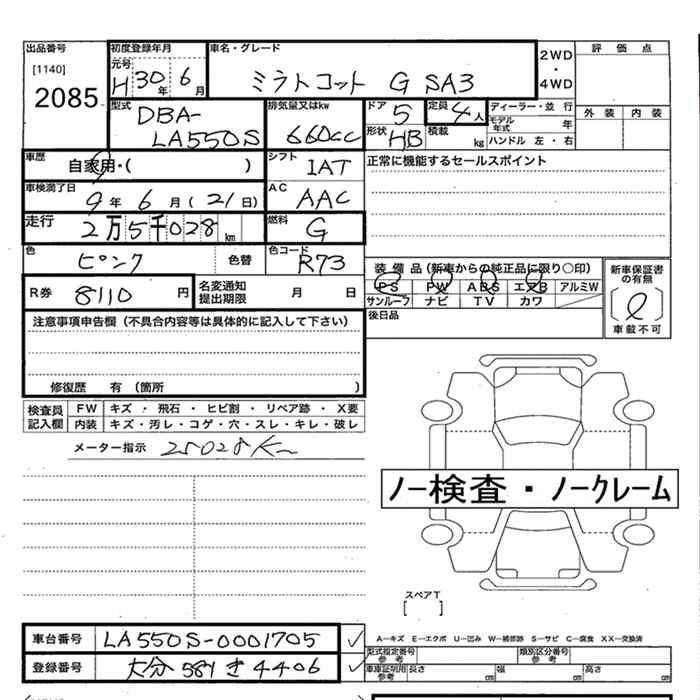 出品番号
[1140]
2085
初度登録年月
元号
H 30年 6月
車名・グレード
ミラトコット G SA3
2WD
・
4WD
評価点
外装 内装
型式
DBA-
LA550S
排気量又はkw
660cc
ドア 5
定員 4人
形状 HB
積載 kg
ディーラー・並行
モデル年式 年
ハンドル 左・右
車歴
自家用・( )
シフト
IAT
正常に機能するセールスポイント
車検満了日
9年 6月 (21日)
AC
AAC
走行
2万5千028km
燃料
G
色
ピンク
色替
色コード
R73
装備品(新車からの純正品に限り○印)
PS PW ABS エアB アルミW
サンルーフ ナビ TV カワ
新車保証書
の有無
車載不可
R券 8110円
名変通知
提出期限
月 日
後日品
注意事項申告欄(不具合内容等は具体的に記入して下さい)
修復歴 有(箇所 )
検査員
記入欄
FW キズ・飛石・ヒビ割・リペア跡・X要
内装 キズ・汚レ・コゲ・穴・スレ・キレ・破レ
メーター指示 25028K
ノー検査・ノークレーム
スペアT
[ ]
A-キズ E-エクボ U-凹み W-補修跡 S-サビ C-腐食 XX-交換済
車台番号 LA550S-0001705
登録番号 大分 581 き 4406
型式指定番号
参考
類別区分番号
参考
車庫証明用
参考
長さ cm 幅 cm 高さ cm